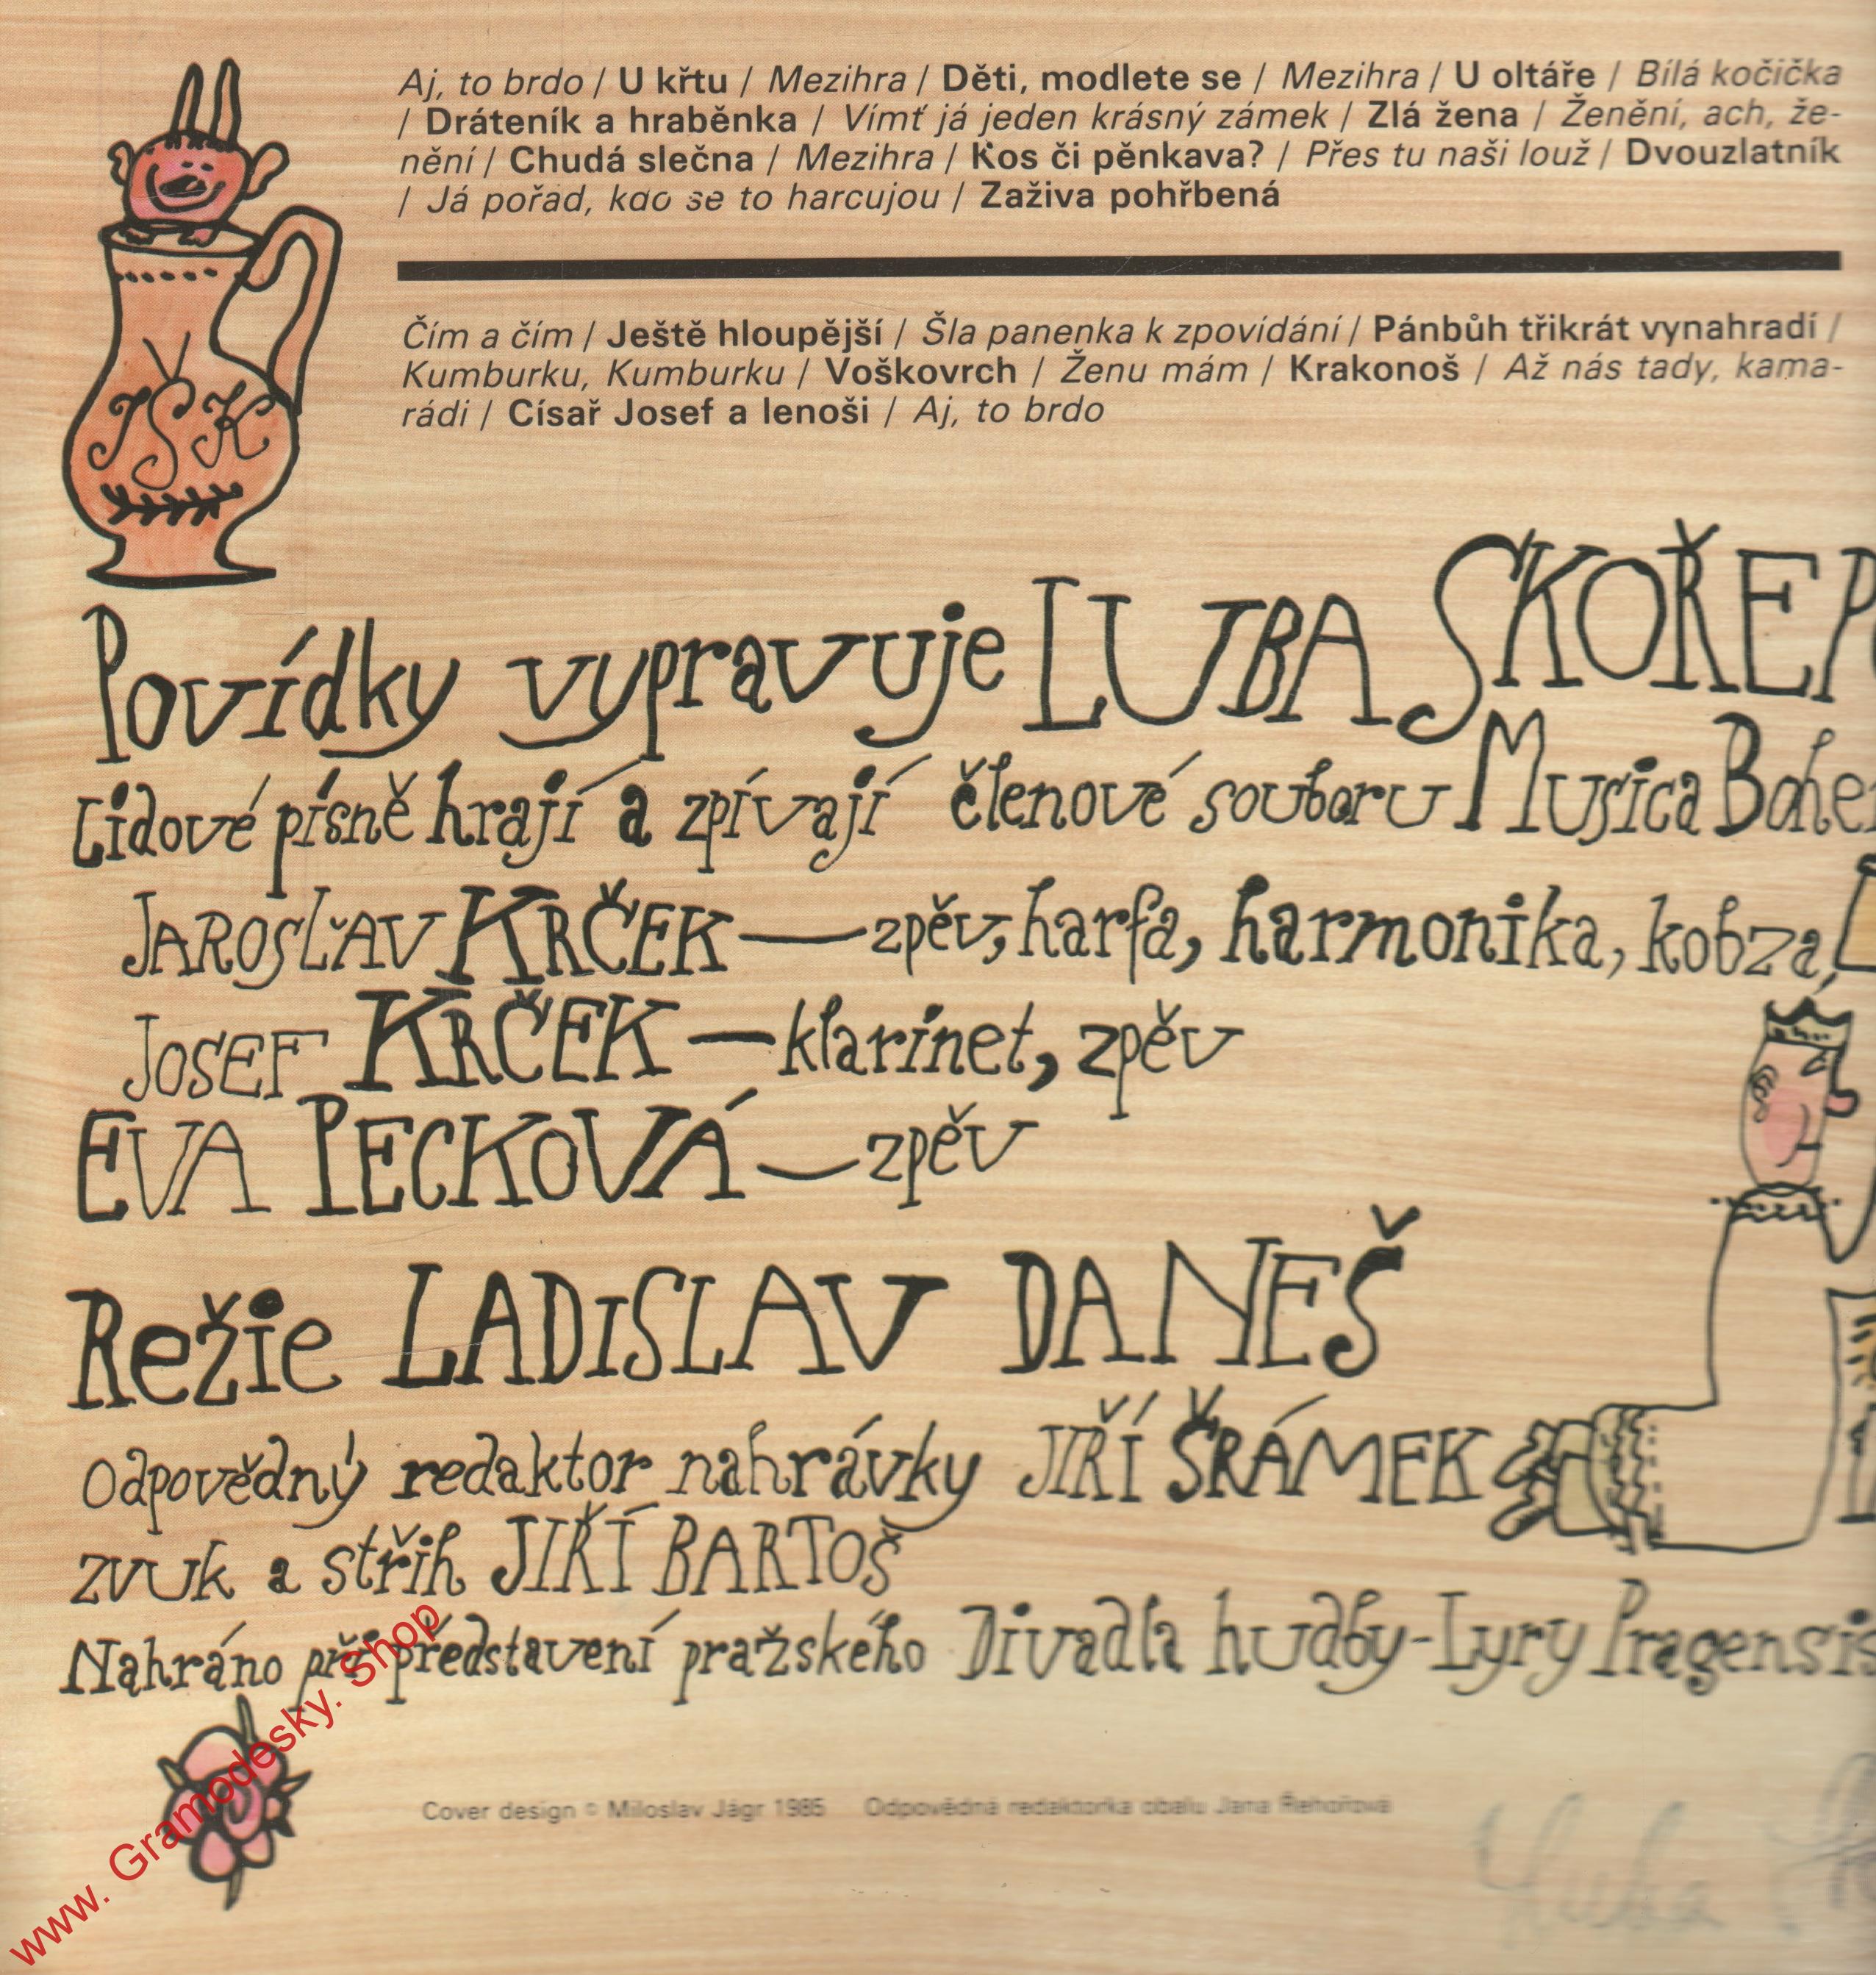 Aj, to brdo / U křtu / Mezihra / Děti, modlete se / Mezihra / U oltáře / Bílá kočička
/ Dráteník a hraběnka / Vímť já jeden krásný zámek / Zlá žena / Ženění, ach, že-
nění / Chudá slečna / Mezihra / Kos či pěnkava? / Přes tu naši louž / Dvouzlatník
/ Já pořád, kdo se to harcujou / Zaživa pohřbená
Čím a čím / Ještě hloupější / Šla panenka k zpovídání / Pánbůh třikrát vynahradí /
Kumburku, Kumburku / Voškovrch / Ženu mám / Krakonoš / Až nás tady, kama-
rádi / Císař Josef a lenoši / Aj, to brdo
JŠK
Povídky vypravuje LUBA SKOŘEP
Lidové písně hrají a zpívají členové souboru Musica Bohe
JAROSLAV KRČEK — zpěv, harfa, harmonika, kobza,
JOSEF KRČEK — klarinet, zpěv
EVA PECKOVÁ — zpěv
Režie LADISLAV DANEŠ
Odpovědný redaktor nahrávky JIŘÍ ŠRÁMEK
zvuk a střih JIŘÍ BARTOŠ
Nahráno při představení pražského Divadla hudby - Lyry Pragensis
Cover design © Miloslav Jágr 1985 Odpovědná redaktorka obalu Jana Řehořová
Luba
www. Gramodesky. Shop